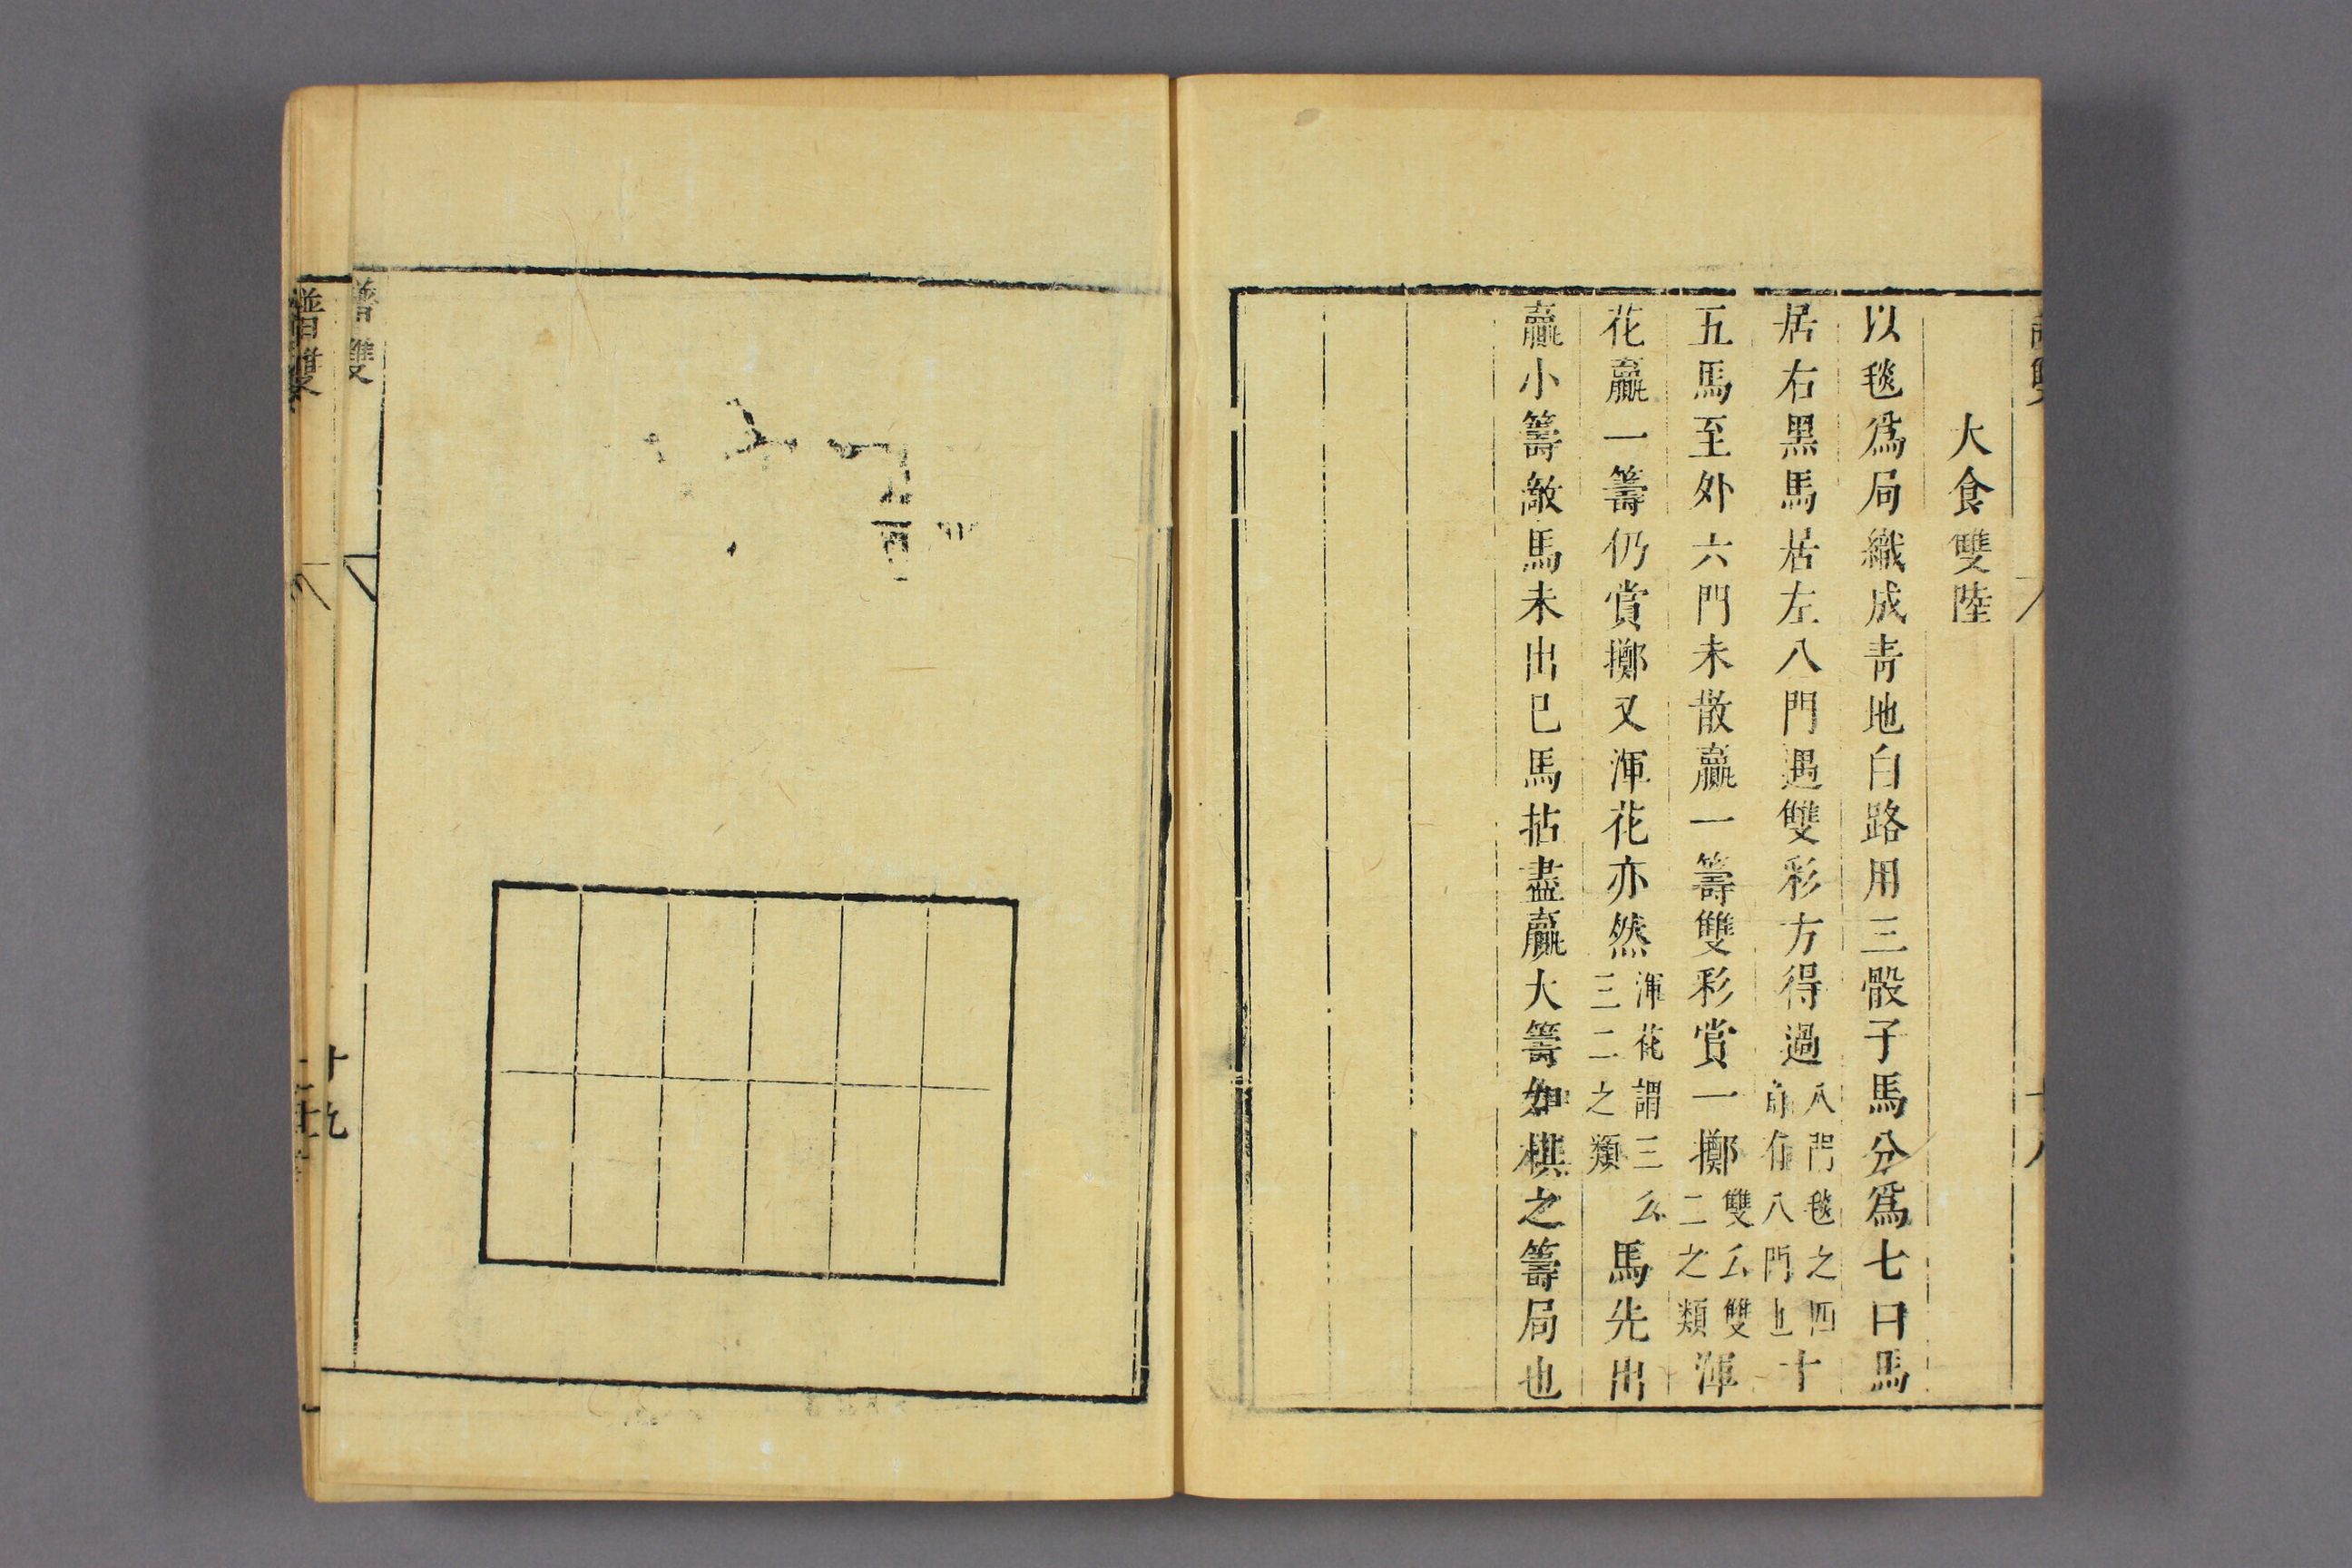 大食雙陸
以毯爲局織成靑地白路用三骰子馬分爲七曰馬
居右黑馬居左八門遇雙彩方得過八門毯之四角有八門也十
五馬至外六門未散贏一籌雙彩賞一擲雙么雙二之類渾
花贏一籌仍賞擲又渾花亦然渾花謂三么三二之類馬先出
贏小籌敵馬未出已馬拈盡贏大籌如棋之籌局也
譜雙
十九